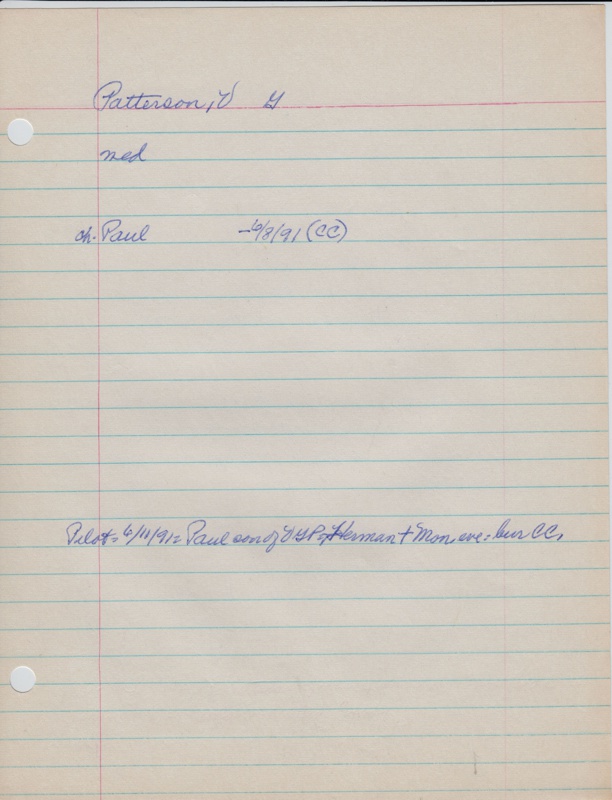 Patterson, V G
med
ch. Paul -6/8/91 (CC)
Pilot= 6/11/91= Paul son of V G P Herman + Mon eve: bur CC.